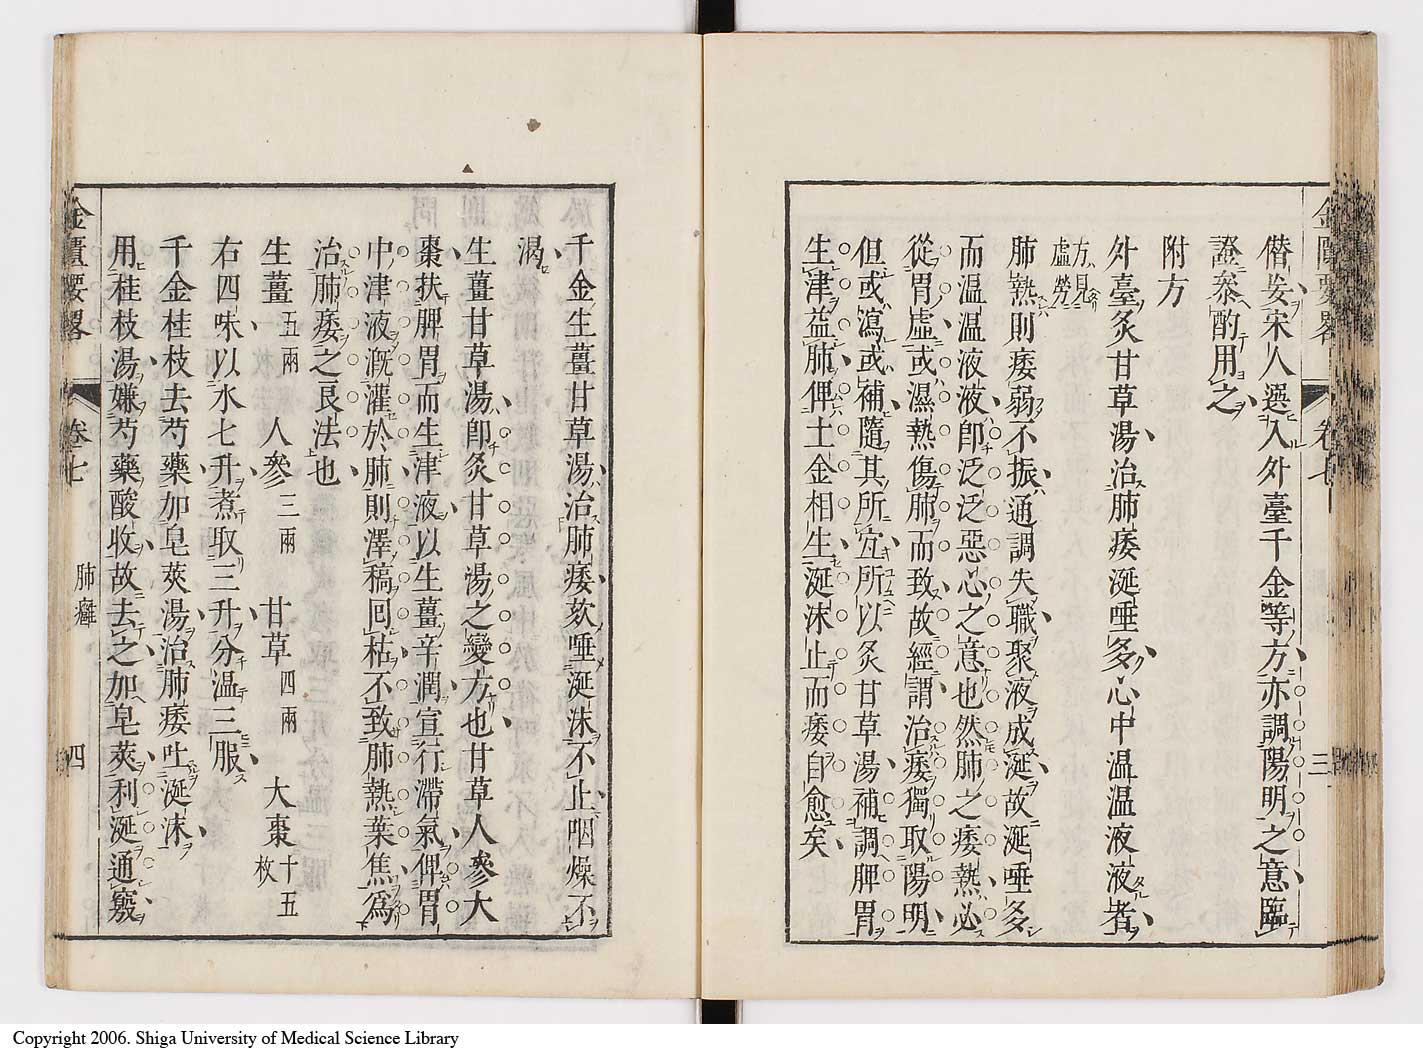 金匱要畧 卷七 三
僭妄宋人選入外臺千金等方亦調陽明之意臨
證叅酌用之
附方
外臺炙甘草湯治肺痿涎唾多心中温温液液者
方見
虛勞
肺熱則痿弱不振通調失職聚液成涎故涎唾多
而温温液液卽泛泛惡心之意也然肺之痿熱必
從胃虛或濕熱傷肺而致故經謂治痿獨取陽明
但或瀉或補隨其所宜所以炙甘草湯補調脾胃
生津益肺俾土金相生涎沫止而痿自愈矣
千金生薑甘草湯治肺痿欬唾涎沫不止咽燥不
渴
生薑甘草湯卽炙甘草湯之變方也甘草人參大
棗扶脾胃而生津液以生薑辛潤宣行滯氣俾胃
中津液漑灌於肺則澤稿回枯不致肺熱葉焦爲
治肺痿之良法也
生薑五兩 人參三兩 甘草四兩 大棗十五枚
右四味以水七升煮取三升分温三服
千金桂枝去芍藥加皂莢湯治肺痿吐涎沫
用桂枝湯嫌芍藥酸收故去之加皂莢利涎通竅
金匱要畧 卷七 肺癰 四
Copyright 2006. Shiga University of Medical Science Library